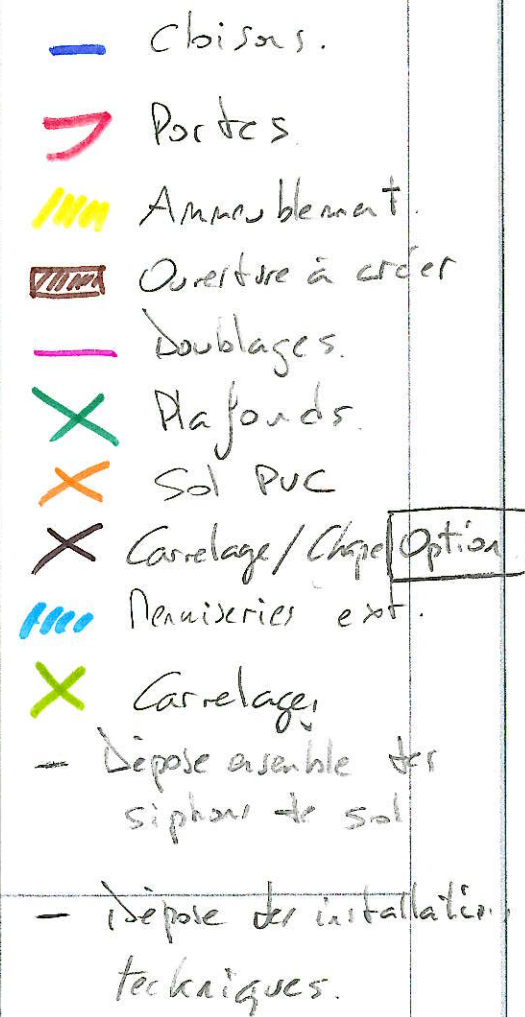 Cloisons.
Portes
Ammeublement.
Ouverture à créer
Doublages.
Plafonds.
Sol PVC
Carrelage/Chape Option
Menuiseries ext.
Carrelage,
- Dépose ensemble des
siphons de sol
- Dépose des installation
techniques.